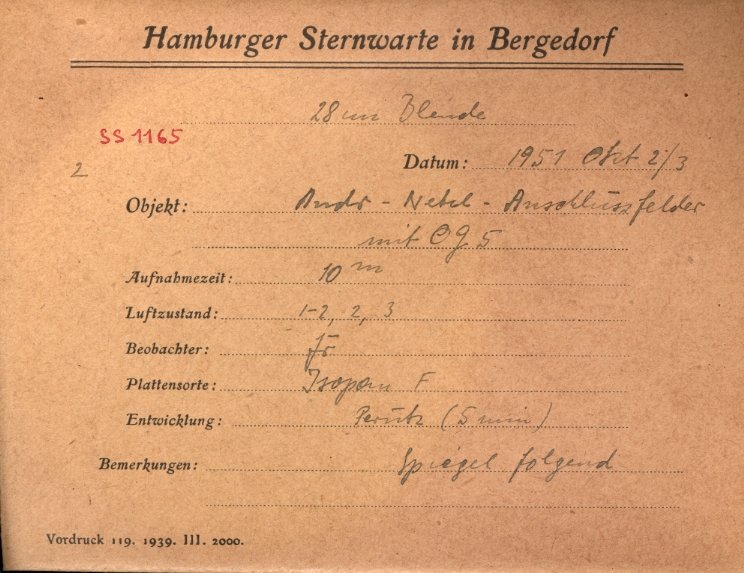 Hamburger Sternwarte in Bergedorf
28 cm Blende
SS 1165
2
Datum: 1951 Okt 2/3
Objekt: Andr - Nebel - Anschlussfelder
mit Cg 5
Aufnahmezeit: 10 m
Luftzustand: 1-2, 2, 3
Beobachter:
Plattensorte: Isopan F
Entwicklung: Perutz (5 min)
Bemerkungen: Spiegel folgend
Vordruck 119. 1939. III. 2000.